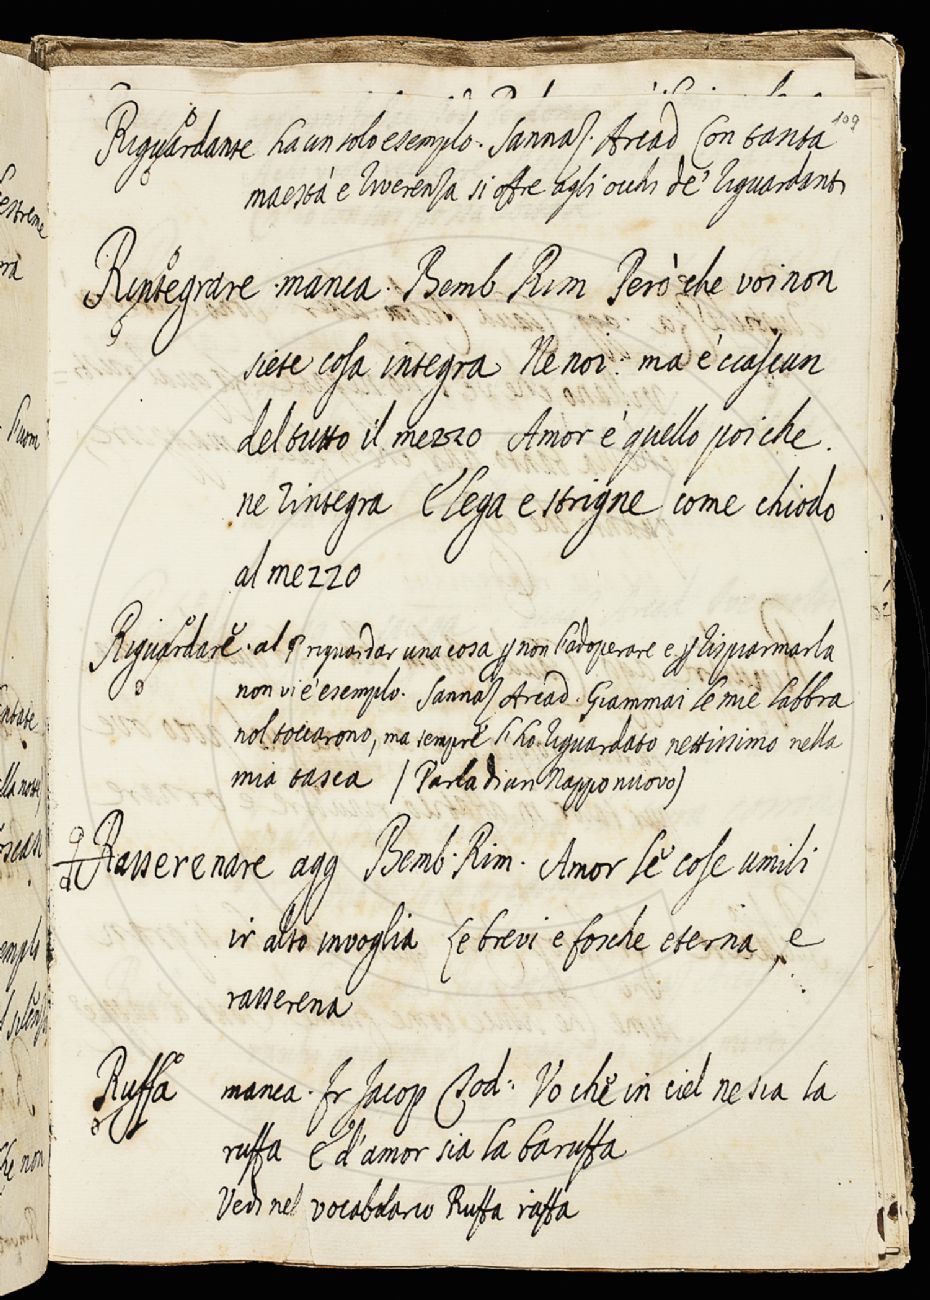 109
Riguardante ha un solo esemplo. Sannaz. Arcad Con tanta
maestà e riverenza si offre agli occhi de' riguardanti
Rintegrare manca. Bemb Rim Però che voi non
siete cosa integra Ne noi. ma è ciascun
del tutto il mezzo Amor è quello poi che
ne rintegra E lega e strigne come chiodo
al mezzo
Riguardare. al § riguardar una cosa p non l'adoperare e p risparmiarla
non vi è esemplo. Sannaz Arcad. Giammai le mie labbra
nol toccarono, ma sempre l'ho riguardato nettissimo nella
mia tasca (Parla di un Nappo nuovo)
Rasserenare agg Bemb. Rim. Amor le cose umili
ir alto invoglia Le brevi e fosche eterna, e
rasserena
Ruffa manca. fr Jacop Tod: Vo che in ciel ne sia la
ruffa E d'amor sia la baruffa
Vedi nel vocabolario Ruffa raffa